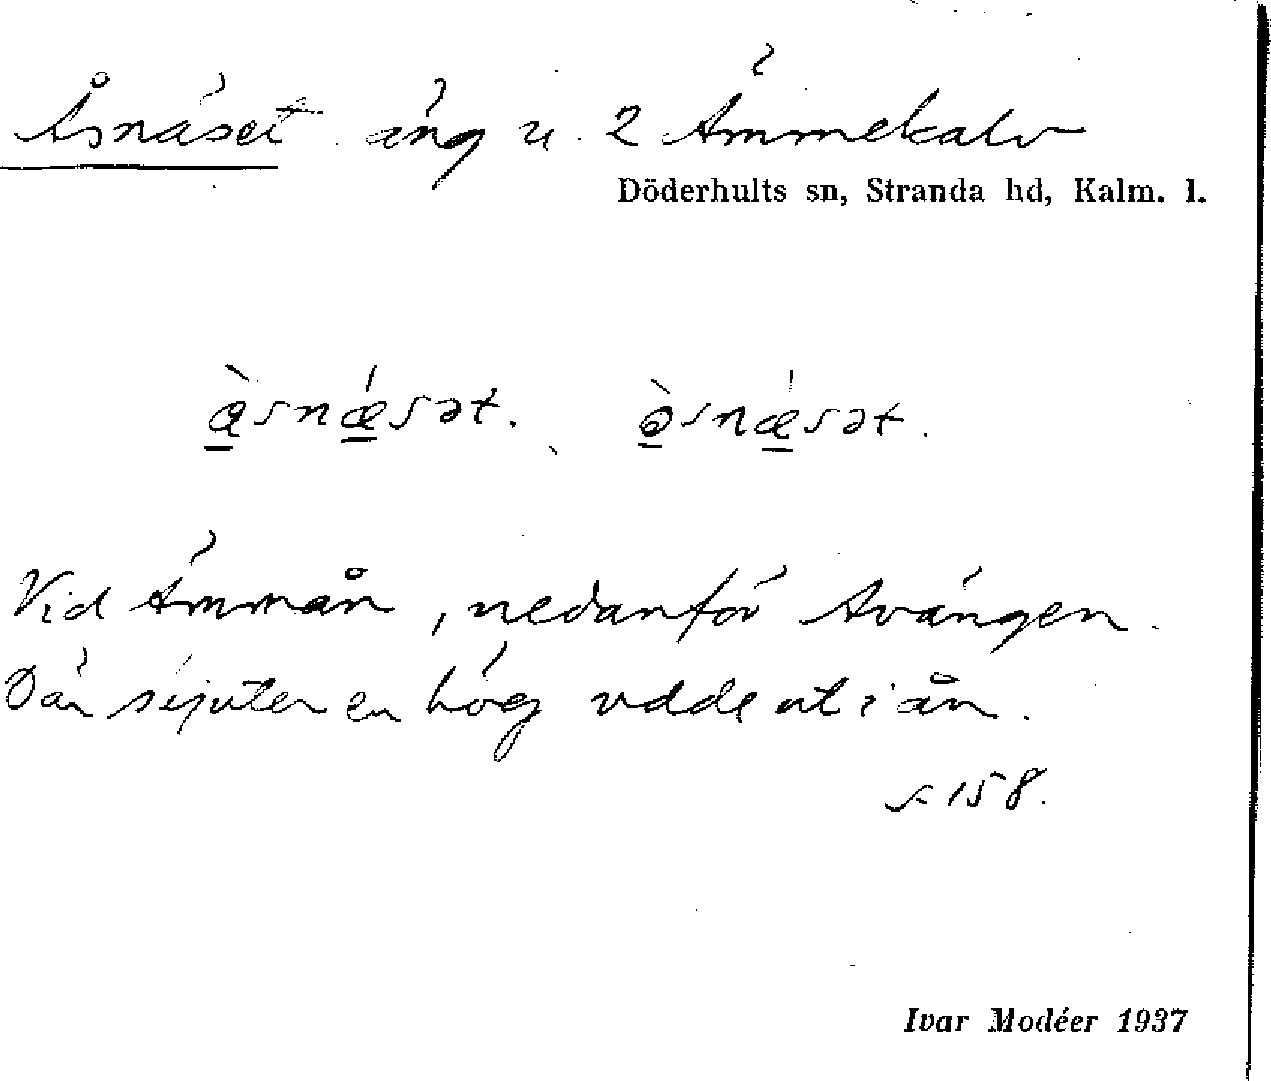 Åsnäset äng u. 2 Ämmekalv
Döderhults sn, Stranda hd, Kalm. l.
æ̀snǽsət. ə̀snǽsət.
Vid Ämmån, nedanför Avängen.
Där skjuter en hög udde ut i ån.
s. 158.
Ivar Modéer 1937